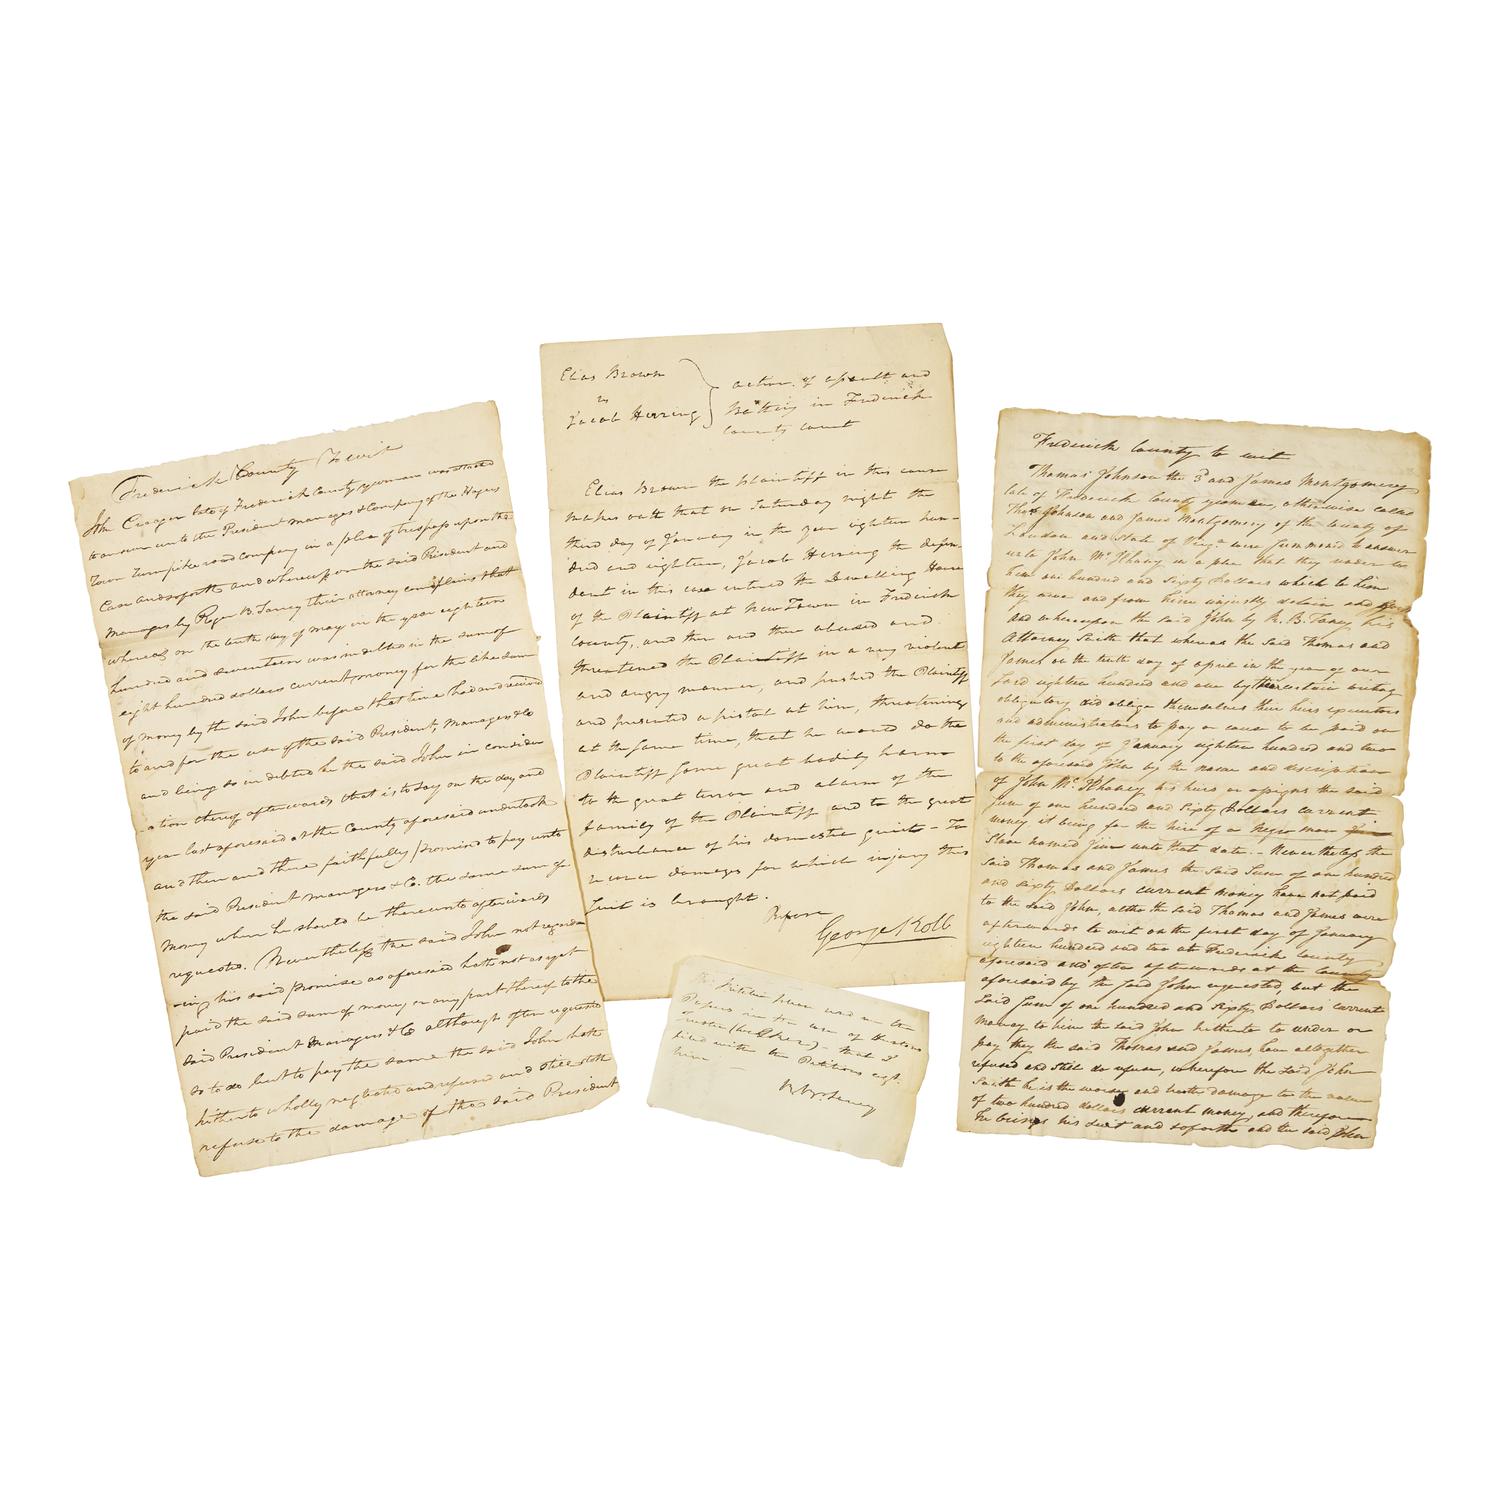 Frederick County to wit
John Creager late of Frederick County yeoman was attached
to answer unto the President managers & Company of the Hagers
Town Turnpike road Company in a plea of trespass upon the
Case and so forth and whereupon the said President and
managers by Roger B. Taney their attorney complains that
whereas on the tenth day of may in the year eighteen
hundred and seventeen was indebted in the sum of
eight hundred dollars current money for the like sum
of money by the said John before that time had and received
to and for the use of the said President, Managers & Co
and being so indebted he the said John in consider
-ation thereof afterwards that is to say on the day and
year last aforesaid at the County aforesaid undertook
and then and there faithfully promised to pay unto
the said President managers & Co. the same sum of
money when he should be thereunto afterwards
requested. Nevertheless the said John not regard
-ing his said promise as aforesaid hath not as yet
paid the said sum of money or any part thereof to the
said President Managers & Co although often requested
so to do but to pay the same the said John hath
hitherto wholly neglected and refused and still doth
refuse to the damage of the said President
Elias Brown
vs
Jacob Herring
action of assault and
Battery in Frederick
County Court
Elias Brown the Plaintiff in this cause
makes oath that on Saturday night the
third day of January in the year eighteen hun-
dred and eighteen, Jacob Herring the defen-
dent in this case entered the Dwelling House
of the Plaintiff at New Town in Frederick
County, and then and there abused and
threatened the Plaintiff in a very violent
and angry manner, and pushed the Plaintiff
and presented a pistol at him, threatening
at the same time, that he would do the
Plaintiff some great bodily harm
to the great terror and alarm of the
family of the Plaintiff and to the great
disturbance of his domestic quiet - To
recover damages for which injury this
suit is brought.
Before
George Kolb
The Petition never was in the
Papers in the case of
Trustee - that I
filed with the Petitions agt.
him -
R. B. Taney
Frederick County to wit
Thomas Johnson the 3d and James Montgomery
late of Frederick County yeomen, otherwise called
Thos Johnson and James Montgomery of the County of
Loudon and State of Virga were summoned to answer
unto John McIlhany in a plea that they render to
him one hundred and sixty Dollars which to him
they owe and from him unjustly detain and
and whereupon the said John by R. B. Taney his
Attorney saith that whereas the said Thomas and
James on the tenth day of april in the year of our
Lord eighteen hundred and one by their certain writing
obligatory did oblige themselves their heirs executors
and administrators to pay or cause to be paid on
the first day of January eighteen hundred and two
to the aforesaid John by the name and description
of John McIlhaney his heirs or assigns the said
sum of one hundred and sixty Dollars current
money it being for the hire of a Negro man
Slave named Jim unto that date - Nevertheless the
said Thomas and James the said Sum of one hundred
and sixty Dollars current money have not paid
to the said John, altho the said Thomas and James were
afterwards to wit on the first day of January
eighteen hundred and two at Frederick County
aforesaid and often afterwards at the County
aforesaid by the said John requested, but the
said sum of one hundred and sixty Dollars current
money to him the said John hitherto to render or
pay they the said Thomas and James, have altogether
refused and still do refuse, wherefore the said John
saith he is the worse and hath damage to the value
of two hundred dollars current money, and therefore
he brings his suit and soforth and the said John